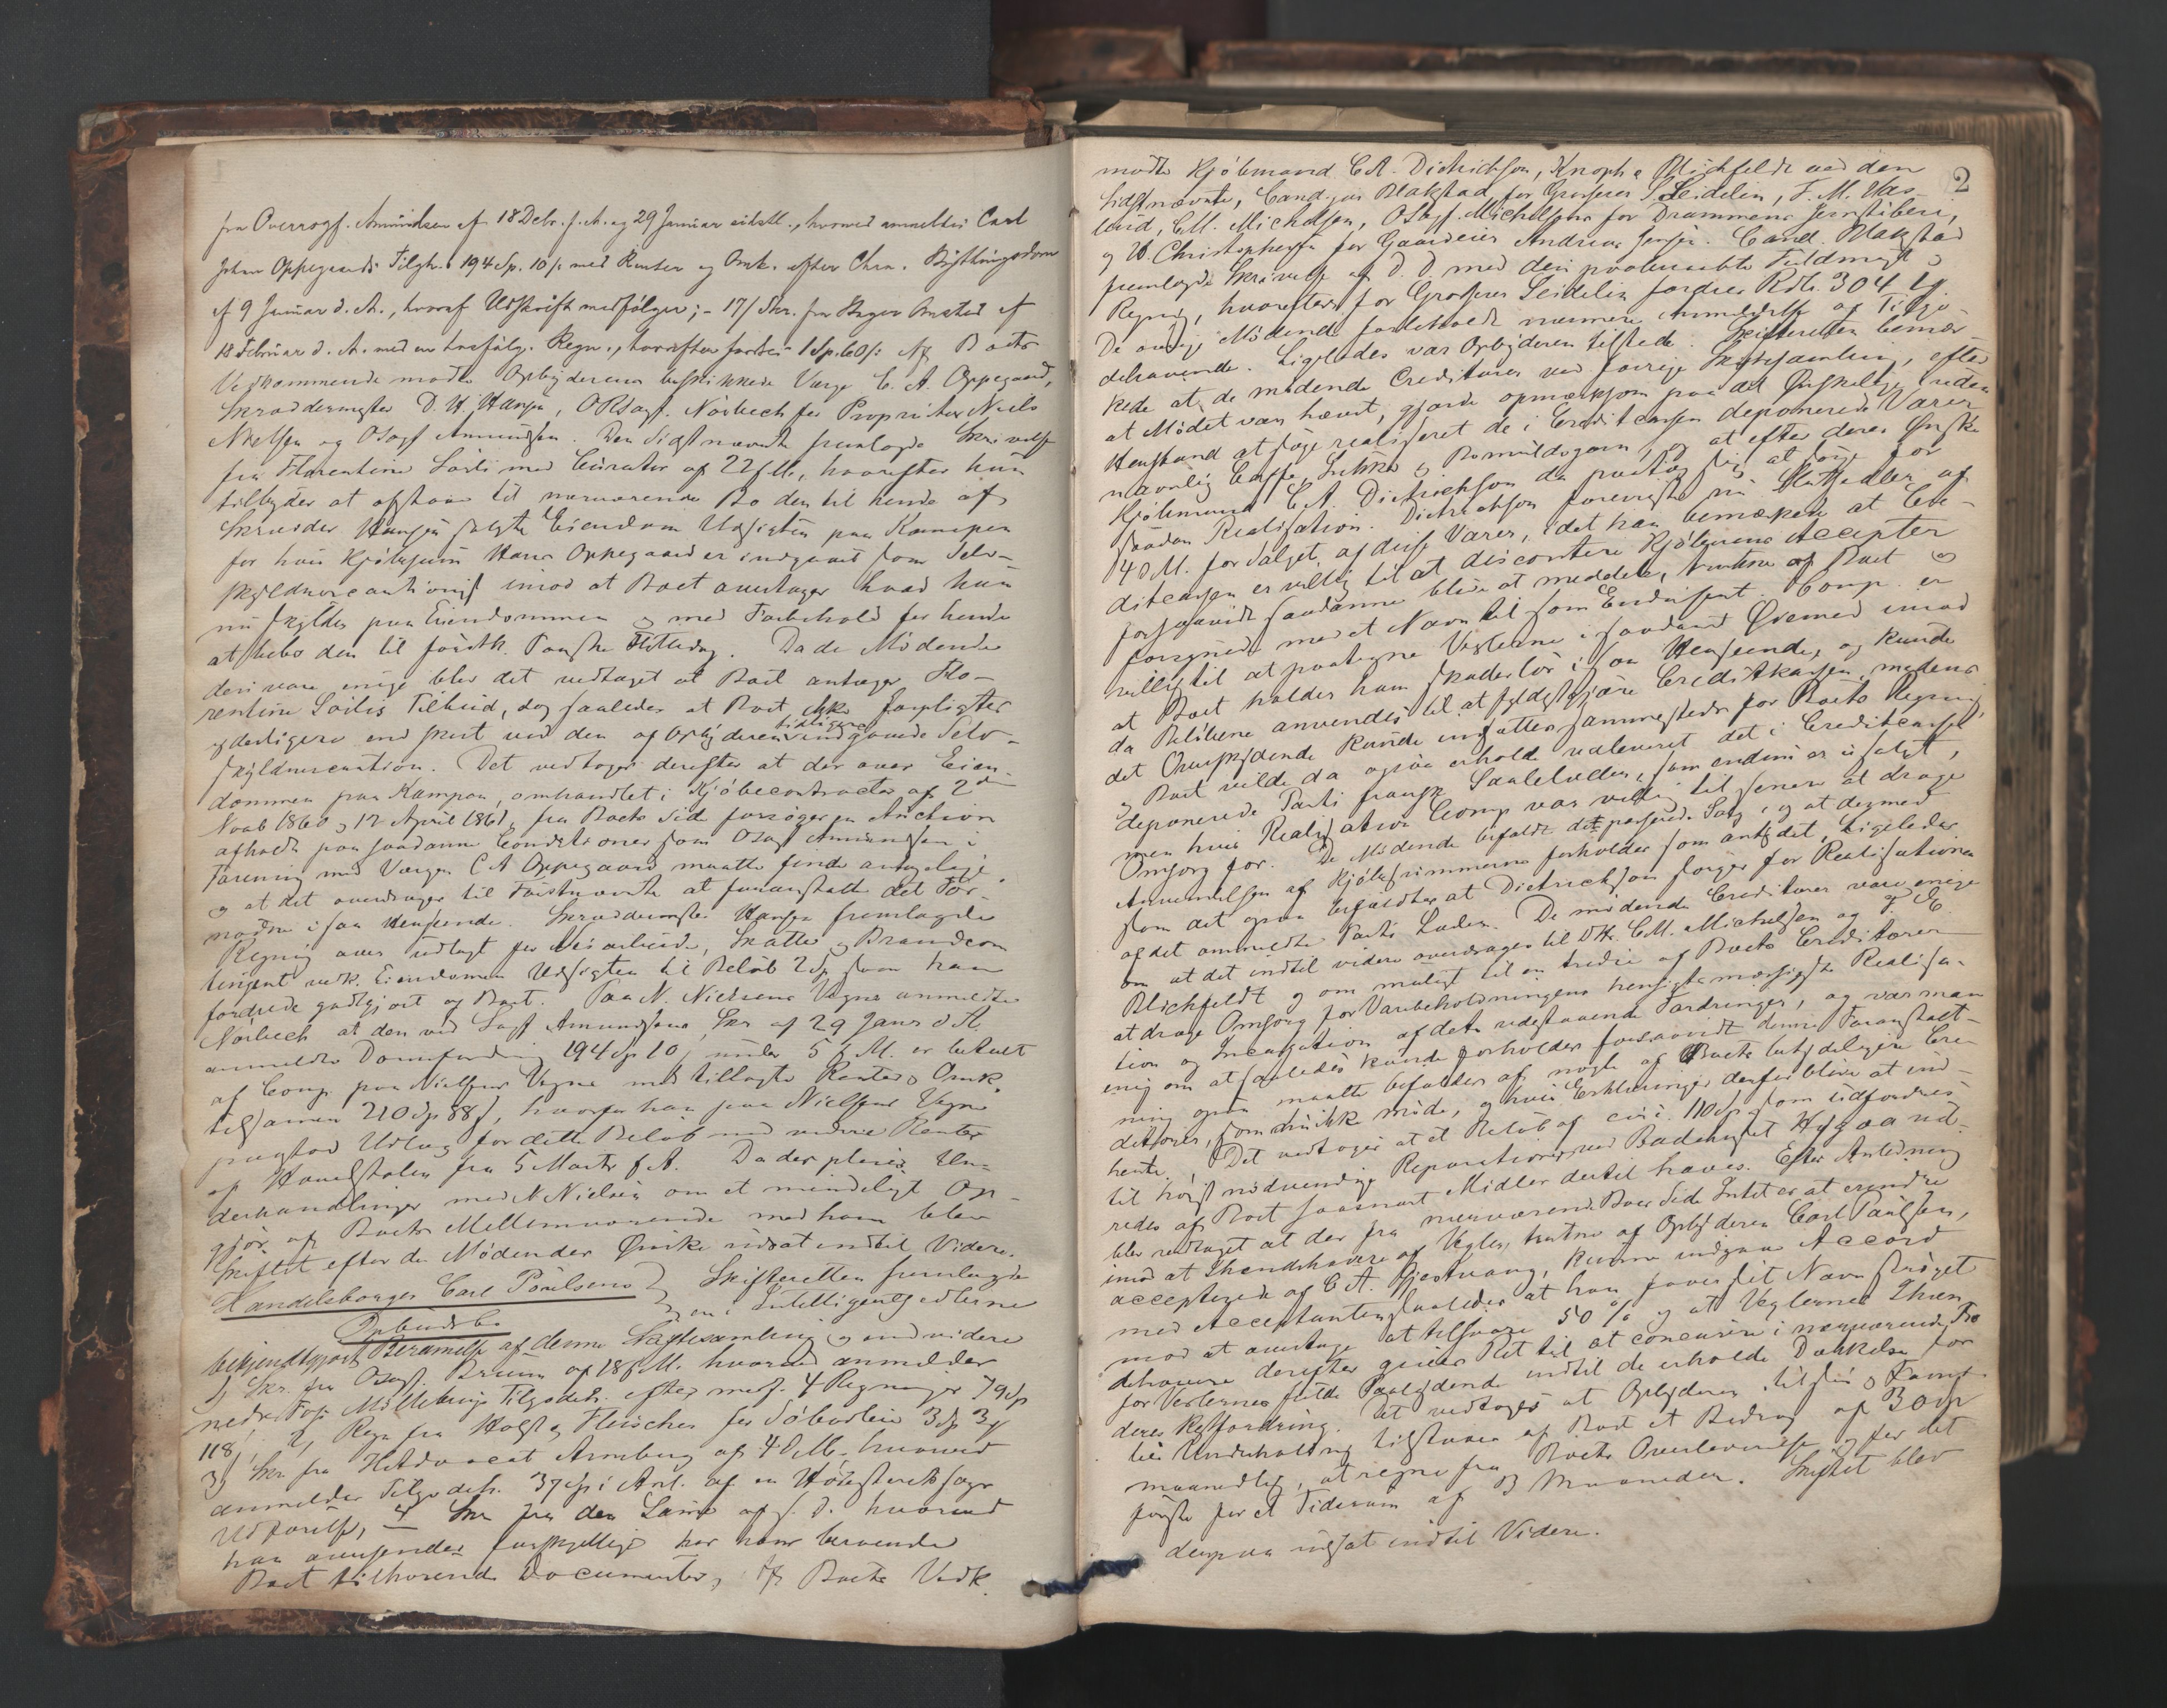 fra Overrogf. Amundsen af 18 Debr. f. A. og 29 Januar sidstl., hvorved anmeldes Carl
Johan Oppegaards Tilgh. 194 Sp. 10 s med Renter og Omk. efter Chra. Bythingsdom
af 9 Januar d. A., hvoraf Udskrift medfølger; - 17/ Skr. fra Bager Onstad af
18 Februar d. A. med en Regn., hvorefter fordres 1 Sp. 60 s. Af Boets
Vedkommende mødte Opbyderens beskikkede Værge C. A. Oppegaard,
Skræddermester D. H. Hansen, ORSagf. Nørbech for Proprietær Niels
Nielsen og OSagf Amundsen. Den Sidstnævnte fremlagde Skrivelse
fra Florentine Løili med Curator af 22 f. M., hvorefter hun
tilbyder at afstaae til nærværende Bo den til hende af
Skræder Hansen solgte Eiendom Udsigten paa Kampen
for hvis Kjøbesum Hans Oppegaard er indgaaet som Selv-
skyldnercautionist imod at Boet overtager hvad hun
nu skylder paa Eiendommen og med Forbehold for hende
at bebo den til førstk. Paaske Flyttedag. Da de Mødende
deri vare enige blev det vedtaget at Boet antager Flo-
rentine Løilis Tilbud, dog saaledes at Boet ikke forpligter
yderligere end skeet ved den af Opbyderen tidligere indgaaede Selv-
skyldnercaution. Det vedtoges derefter at der over Eien-
dommen paa Kampen, omhandlet i Kjøbecontracter af 2den
Novb 1860 og 12 April 1861, fra Boets Side forsøges en Auction
afholdt paa saadanne Conditioner som OSagf Amundsen i
Forening med Værgen C A Oppegaard maatte finde antagelige
og at det overdrages til Førstnævnte at foranstalte det For-
nødne i saa Henseende. Skræddermester Hansen fremlagde
Regning over udlagt for Veiarbeide, Skatter og Brandcon
tingent vedk. Eiendommen Udsigten til Beløb 2 Sp, som han
fordrede godtgjort af Boet. Paa N. Nielsens Vegne anmeldte
Nørbech at den ved Sagf Amundsens Skr af 29 Janr d A.
anmeldte Domsfordring 194 Sp 10 s under 5 f. M. er betalt
af Comp. paa Nielsens Vegne med tillagte Renter og Omk.
tilsammen 210 Sp 88 s, hvorfor han paa Nielsens Vegne
paastod Udlæg for dette Beløb med videre Renter
af Hovedstolen fra 5 Marts f A. Da der pleies Un-
derhandlinger med N Nielsen om et mindeligt Op-
gjør af Boets Mellemværende med ham blev
Skiftet efter de Mødendes Ønske udsat indtil Videre.
Handelsborger Carl Poulsens } Skifteretten fremlagde
Opbudsbo } en i Intelligentssedlerne
bekjendtgjort Berammelse af denne Skiftesamling og end videre
1) Skr. fra Osagf. Bruun af 18 f. M. hvorved anmeldes
nedre Foss Møllebrugs Tilgodeh. efter medf. 4 Regninger 79 Sp
118 s, 2) Regn fra Holst & Fleischer for Søborlein 3 Sp 3 s
3) Skr fra HAdvocat Arneberg af 4 d. M. hvorved
anmeldes Tilgodeh. 37 Sp i Anl. af en Høiesteretssags
Udførelse, 4 Skr fra den Samme af s. D. hvorved
han oversender forskjellige hos ham beroende
Boet tilhørende Documenter, Af Boets Vedk.
2
mødte Kjøbmand C A. Dietrichson, Knoph & Blichfeldt ved den
Sidstnævnte, Cand. jur Blakstad for Grosserer S Seidelin, F. M. Wes-
lund, C M. Michelsen, OSagf. Michelsen for Drammens Jernstøberi,
og W. Christophersen for Gaardeier Andreas Jensen. Cand. Blakstad
fremlagde Skrivelse af D. D. med deri paaberaabte Fuldmagt og
Regning, hvorefter for Grosserer Seidelin fordres Rdl. 304
De øvrige Mødende forbeholdt nærmere Anmeldelse af Tilgo-
dehavende. Ligeledes var Opbyderen tilstede. Skifteretten bemær-
kede at de mødende Creditorer ved forrige Skiftesamling, efter
at Mødet var hævet, gjorde opmærksom paa det Ønskelige i uden
Henstand at søge realiseret de i Creditcassen deponerede Varer
navnlig Caffe, Sukker & Bomuldsgarn, og at efter deres Ønske
Kjøbmand C. A. Dietrichson da paatog sig at sørge for
saadan Realisation. Dietrichson foreviste nu Slutsedler af
14 d. M. for Salget af disse Varer, idet han bemærkede at Cre-
ditcassen er villig til at discontere Kjøberens Accepter
forsaavidt saadanne blive at meddele, trukne af Boet &
forsynede med et Navn til som Endossent. Comp. er
villig til at paategne Vexlerne i saadant Øiemed imod
at Boet holder ham skadesløs i saa Henseende, og kunde
da Beløbene anvendes til at fyldestgjøre Creditkassen, medens
det Overskydende kunde indsættes sammesteds for Boets Regning,
og Boet vilde da ogsaa erholde udleveret det i Creditcassen
deponerede Parti fransk Saalelæder, som endnu er usolgt,
men hvis Realisation Comp var villig til senere at drage
Omsorg for. De Mødende bifaldt det passerede Salg, og at dermed
Anvendelsen af Kjøbesummerne forholdes som antydet, Ligeledes
som det ogsaa bifaldtes at Dietrichson sørger for Realisationen
af det ommeldte Parti Læder. De mødende Creditorer vare enige
om at det indtil videre overdrages til DHr. C. M. Michelsen og T. E.
Blichfeldt og om muligt til en tredie af Boets Creditorer
at drage Omsorg for Varebeholdningens hensigtsmæssigste Realisa-
tion og Incassation af dets udestaaende Fordringer, og var man
enig om at saaledes kunde forholdes forsaavidt denne Foranstalt-
ning ogsaa maatte bifaldes af nogle af Boets betydeligere Cre-
ditorer, som nu ikke møde, og hvis Erklæringer derfor blive at ind-
hente. Det vedtoges at et Beløb af circa 110 Sp som udfordres
til høist nødvendige Reparationer ved Badehuset Hygæa ud-
redes af Boet saasnart Midler dertil haves. Efter Anledning
blev vedtaget at der fra nærværende Boes Side Intet er at erindre
imod at Ihændehavere af Vexler, trukne af Opbyderen Carl Poulsen,
accepterede af C A. Gjestvang, kunne indgaae Accord
med Acceptanten saaledes at han faaer sit Navn strøget
mod at overtage at tilsvare 50 % og at Vexlernes Ihæn-
dehavere derefter gives Ret til at concurrere i nærværende Bo
for Vexlernes fulde Paalydende indtil de erholde Dækkelse for
deres Restfordring. Det vedtoges at Opbyderen til sin & Fami-
lies Underholdning tilstaaes af Boet et Bidrag af 30 Sp
maanedlig, at regne fra Boets Overleverelse og for det
første for et Tidsrum af 3 Maaneder. Skiftet blev
derpaa udsat indtil Videre.